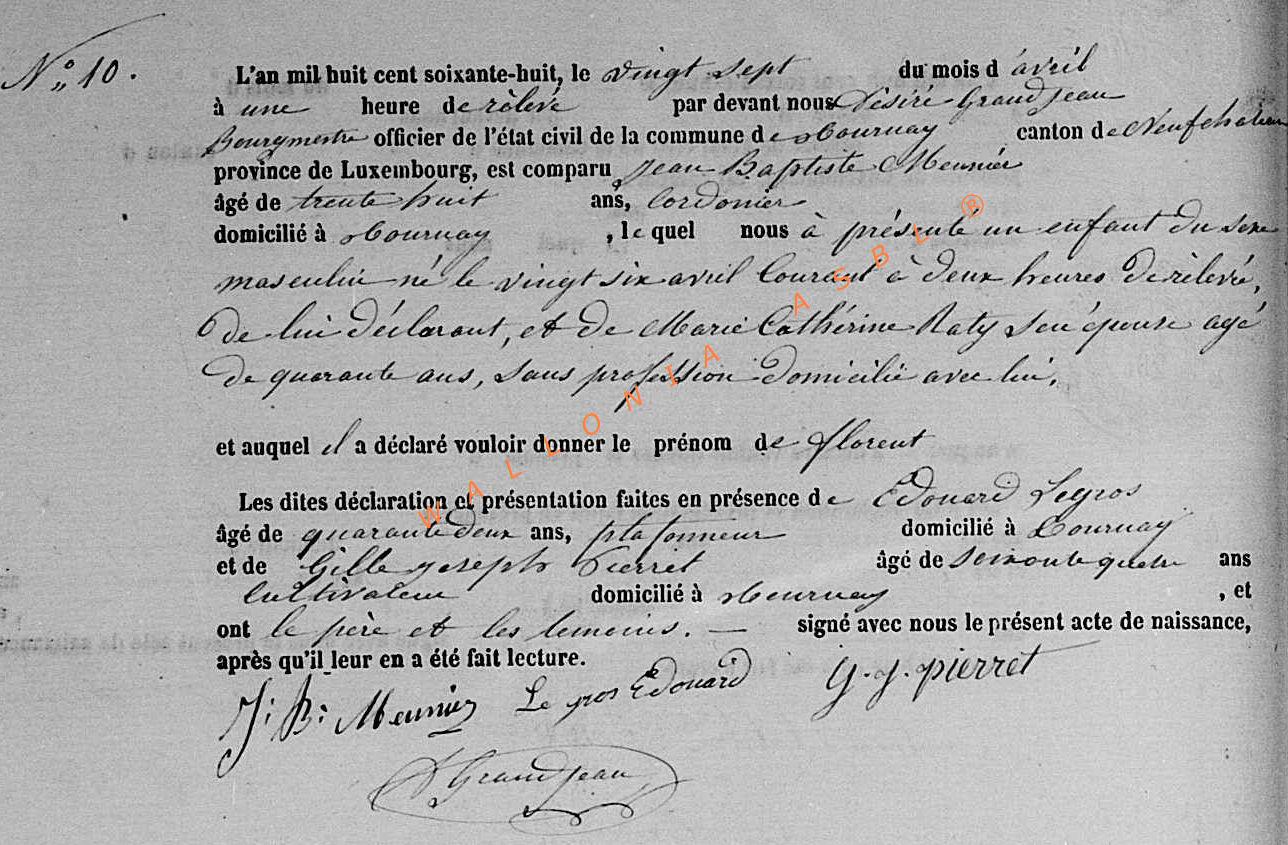 N° 10.
L'an mil huit cent soixante-huit, le vingt sept du mois d'avril
à une heure de rèlevé par devant nous Désiré Grandjean
Bourgmestre officier de l'état civil de la commune de Tournay canton de Neufchâteau
province de Luxembourg, est comparu Jean Baptiste Meunier
âgé de trente huit ans, Cordonier
domicilié à Tournay, le quel nous à présenté un enfant du sexe
masculin né le vingt six avril Courant à deux heures de rèlevé,
de lui déclarant, et de Marie Cathérine Raty son épouse agé
de quarante ans, sans profession domicilié avec lui,
et auquel il a déclaré vouloir donner le prénom de florent
Les dites déclaration et présentation faites en présence de Edouard Legros
âgé de quarante deux ans, plafonneur domicilié à Tournay
et de Gille joseph Pierret âgé de soixante quatre ans
Cultivateur domicilié à Tournay, et
ont le père et les temoins. — signé avec nous le présent acte de naissance,
après qu'il leur en a été fait lecture.
J: B: Meunier Le gros Edouard G. J. pierret
D Grandjean
WALLONIA ASBL ®